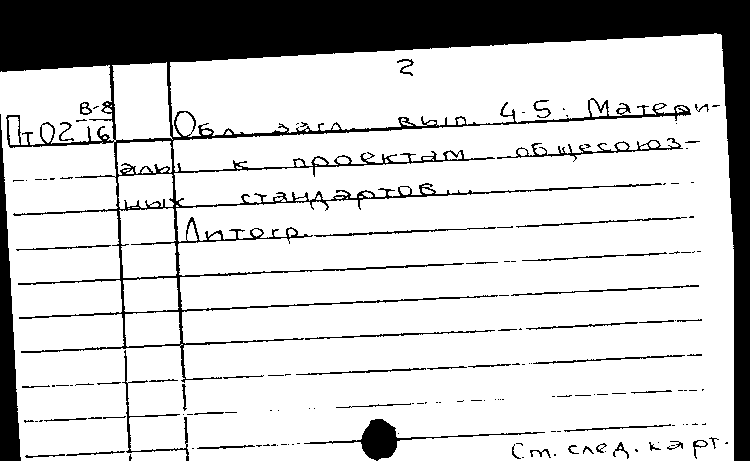 2
В-8
Пт02.16 Обл. загл. вып. 4-5: Матери-
алы к проектам общесоюз-
ных стандартов...
Литогр.
См. след. карт.